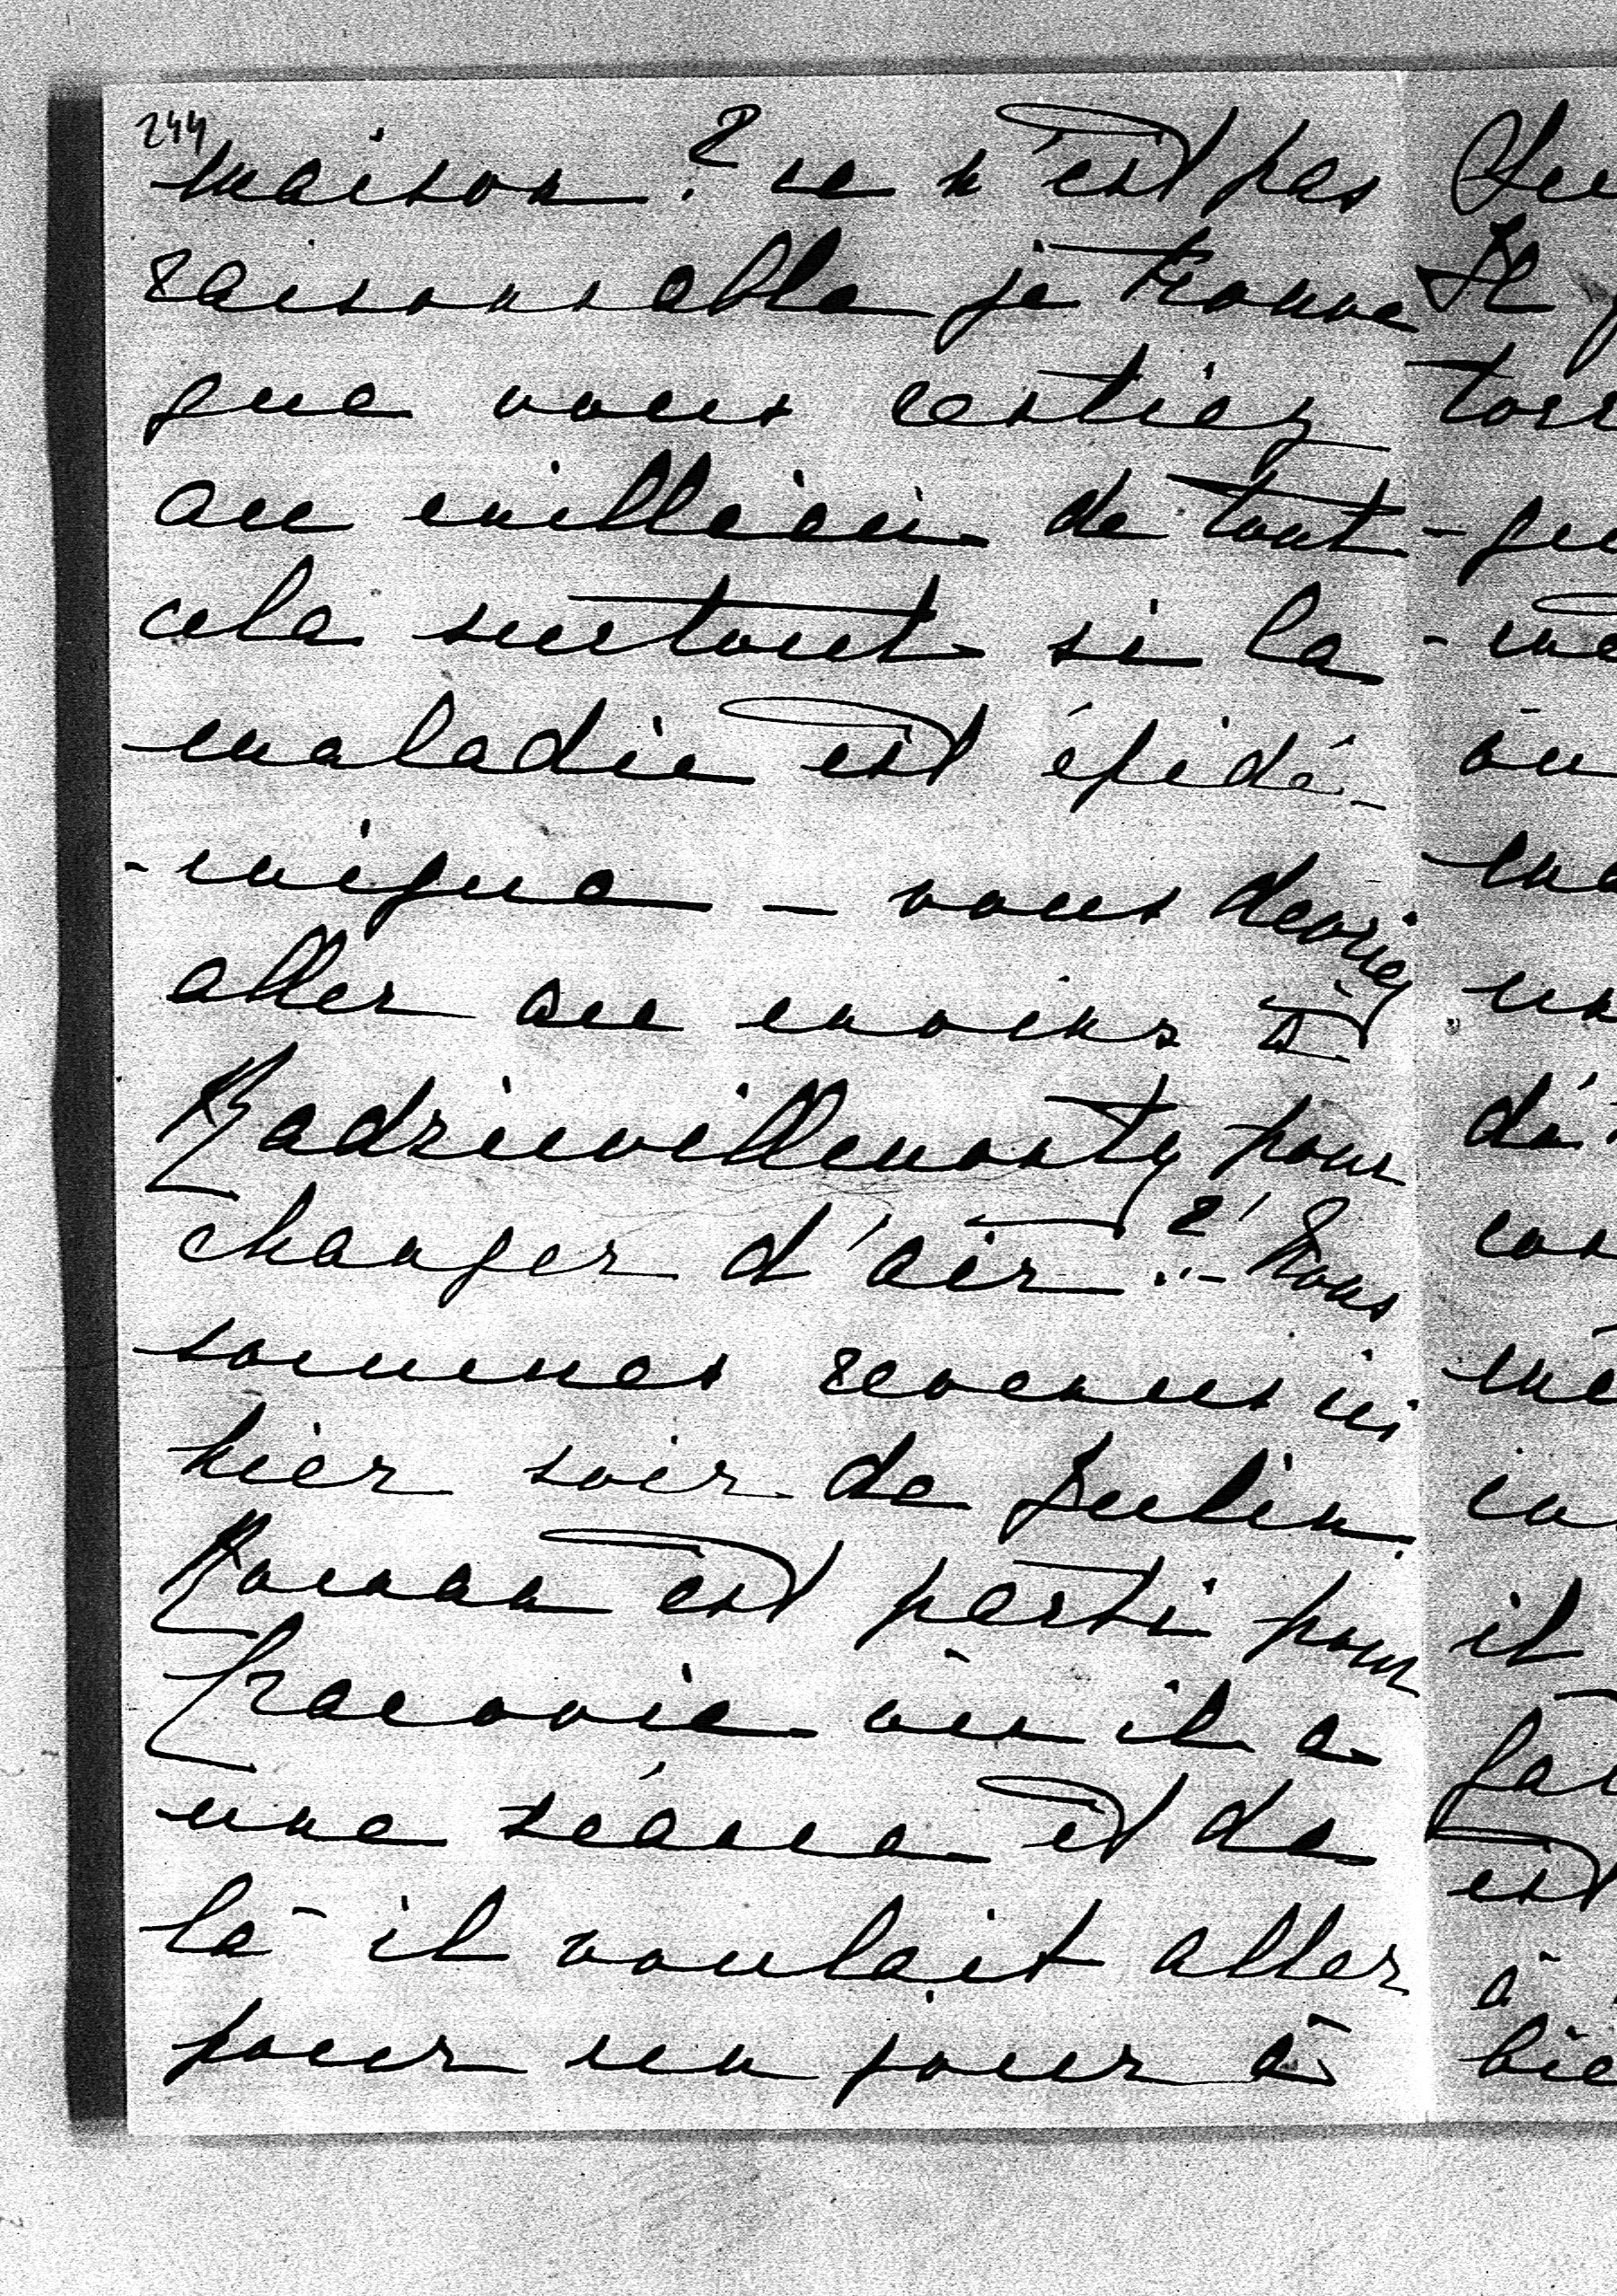 244
maison? ce n'est pas
raisonnable je trouve
que vous restiez
au milieu de tout
cela surtout si la
maladie est épidé-
-mique - vous devriez
aller au moins à
Radziwillmonty pour
changer d'air? - Nous
sommes revenus ici
hier soir de
Roman est parti pour
Cracovie où il a
une séance et de
là il voulait aller
pour un jour à